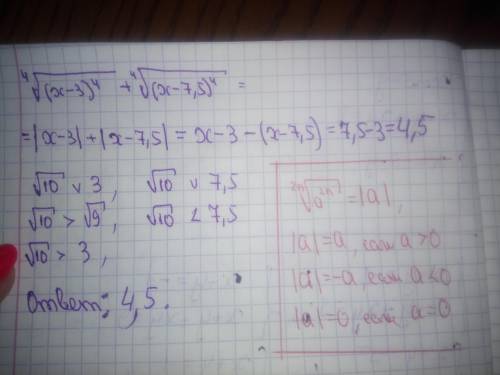 ⁴√(x-3)⁴ + ⁴√(x-7,5)⁴ =
= |x-3| + |x-7,5| = x-3-(x-7,5) = 7,5-3 = 4,5
√10 ∨ 3, √10 ∨ 7,5
√10 > √9, √10 < 7,5
√10 > 3,
Ответ: 4,5.
²ⁿ√a²ⁿ = |a|,
|a| = a, если a > 0
|a| = -a, если a < 0
|a| = 0, если a = 0